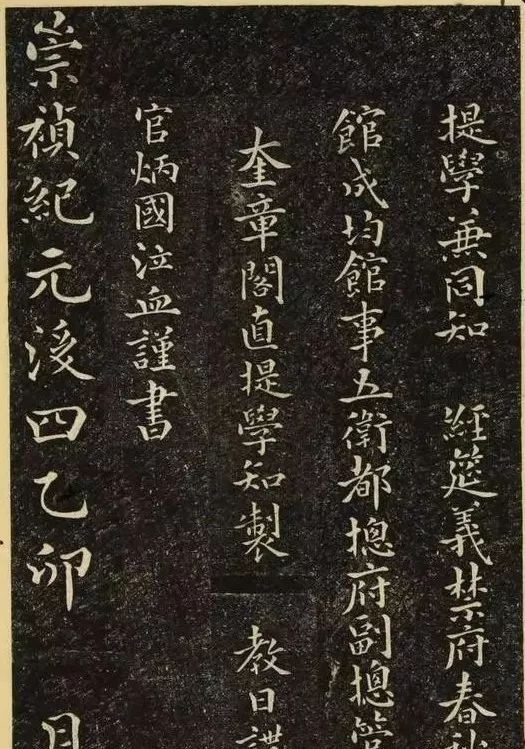 提學兼同知 經筵義禁府春
館成均館事五衛都摠府副摠管
奎章閣直提學知製 教日講
官炳國泣血謹書
崇禎紀元後四乙卯 月